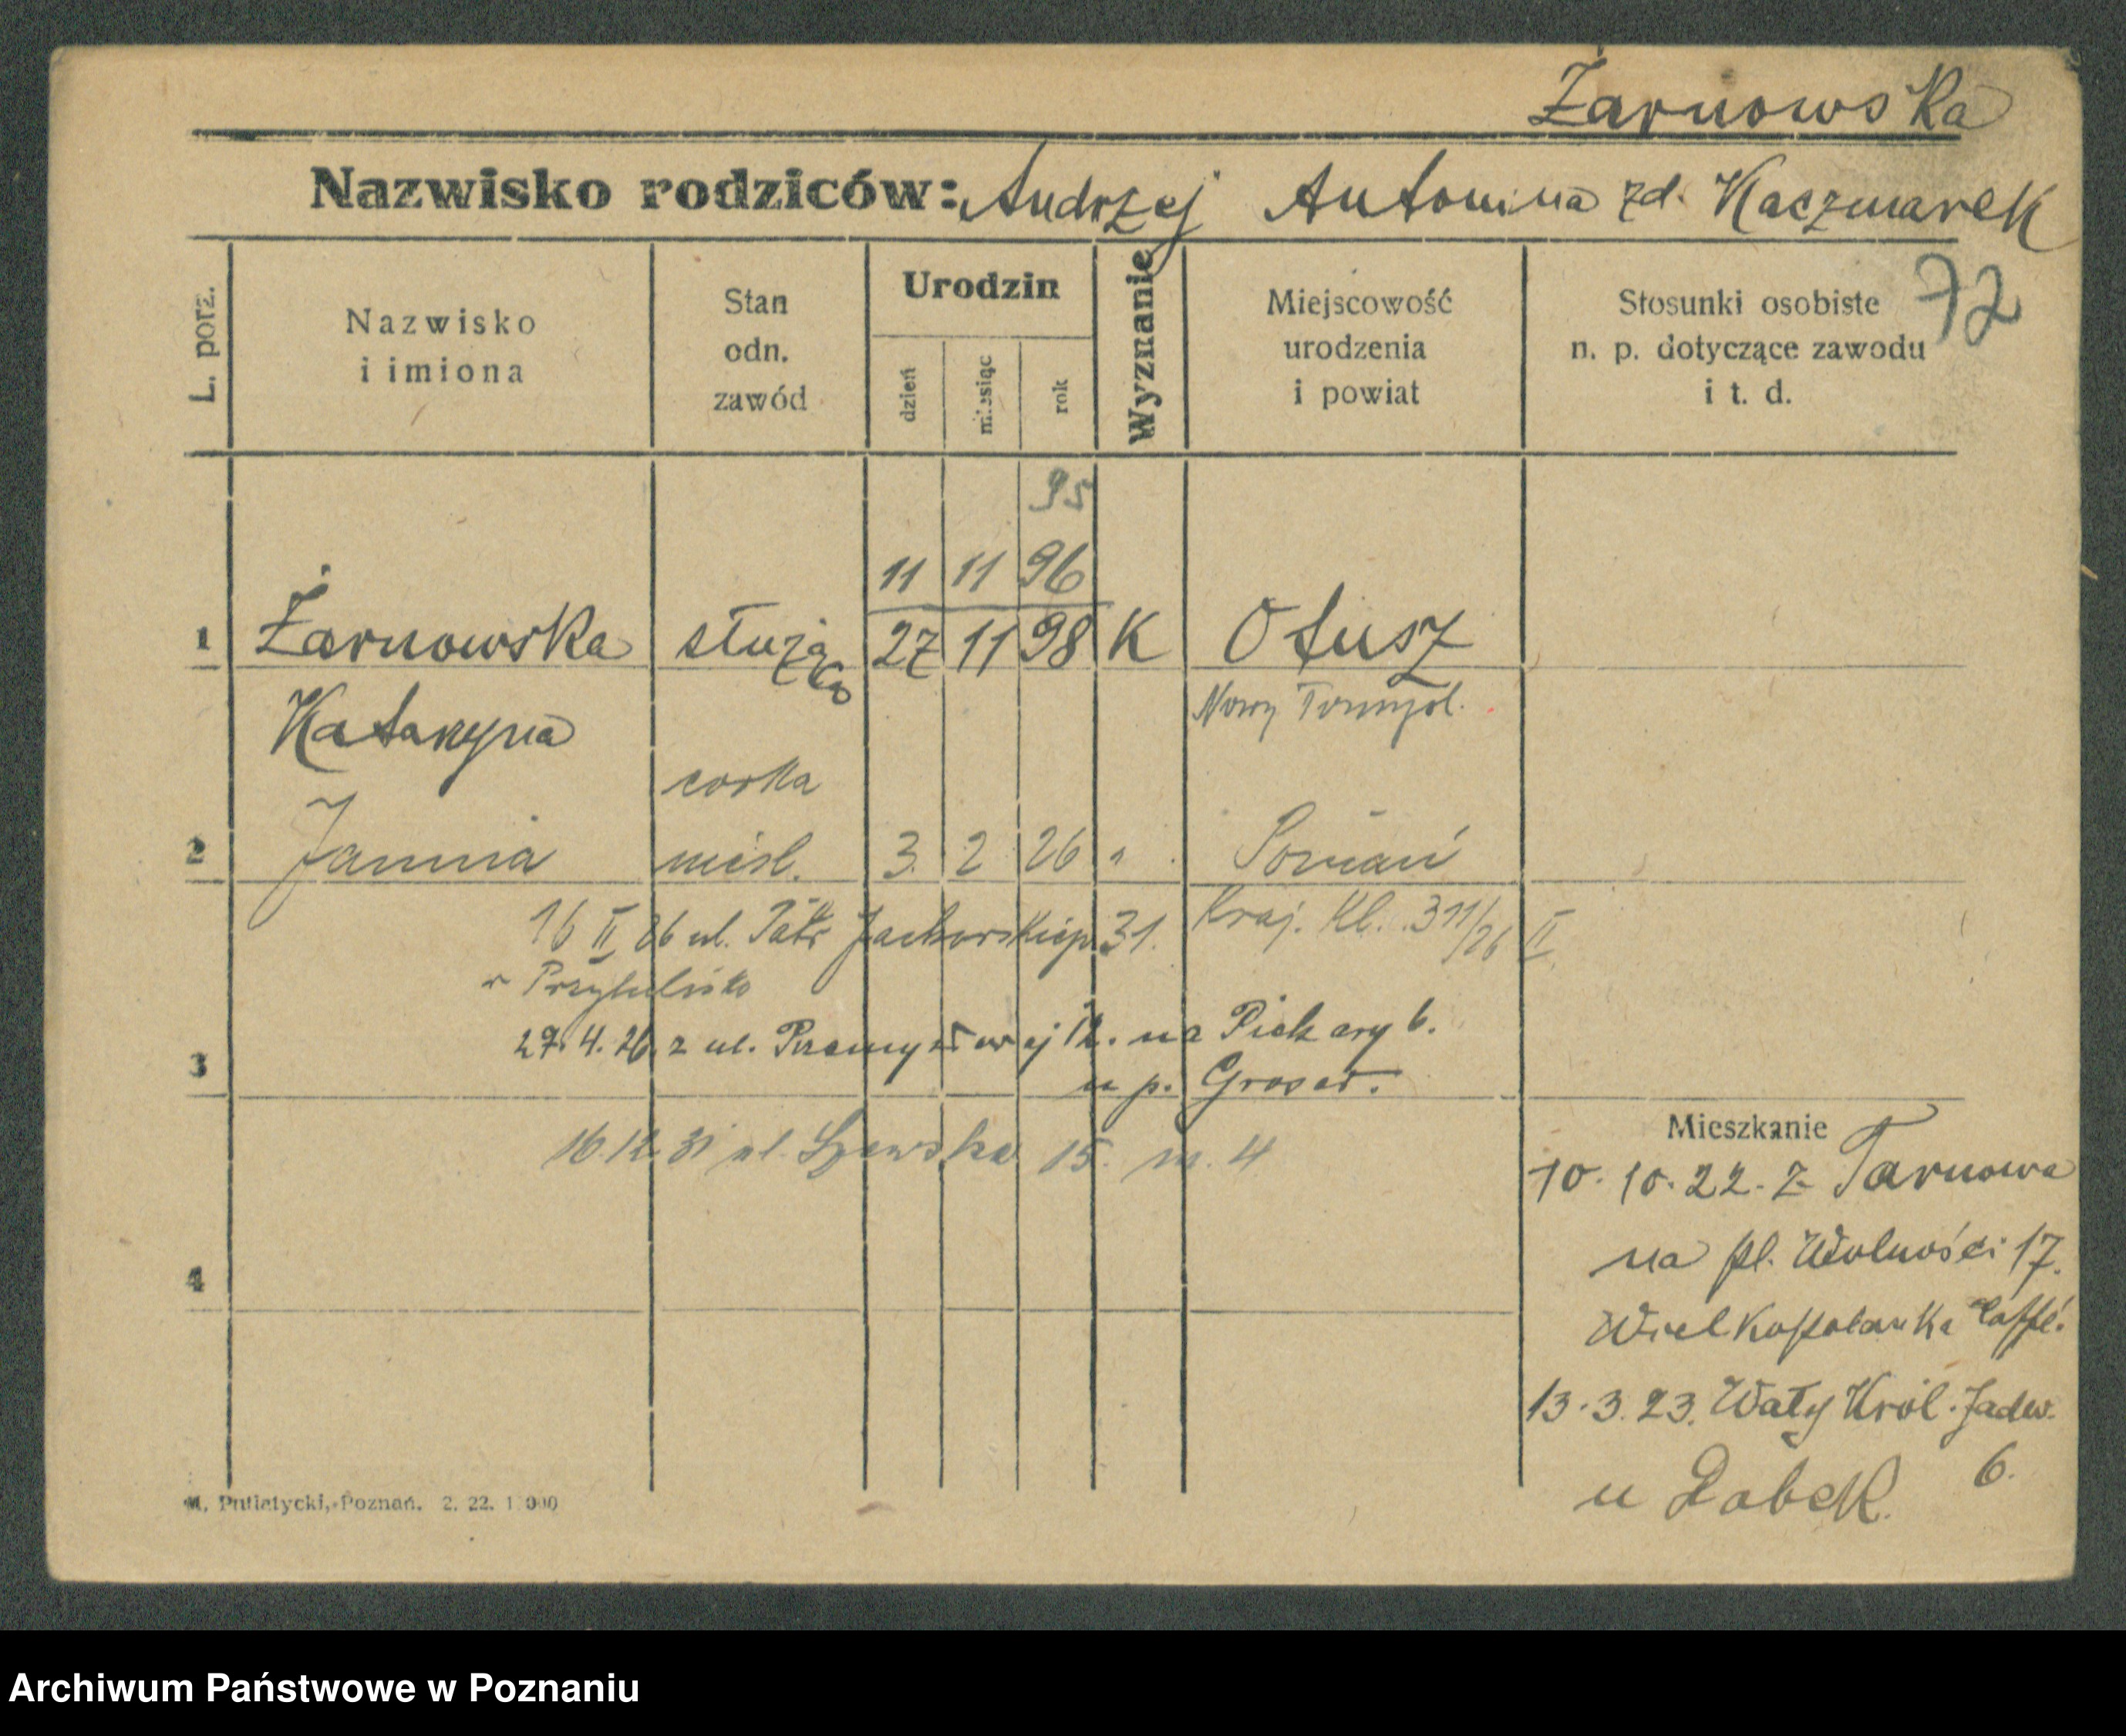 Żarnowska
Nazwisko rodziców: Andrzej Antonina zd. Kaczmarek
72
L. porz.
Nazwisko
i imiona
Stan
odn.
zawód
Urodzin
dzień
miesiąc
rok
Wyznanie
Miejscowość
urodzenia
i powiat
Stosunki osobiste
n. p. dotyczące zawodu
i t. d.
95
11 11 96
1 Żarnowska służąca 27 11 98 K Otusz
Katarzyna Nowy Tomyśl.
corka
2 Janina nieśl. 3. 2 26 " Poznań
16 II 26 ul. Jackowskiego 31. Kraj. Kl. 311/26 II
w Przytulisko
27.4.26. z ul. Przemysłowej 12. na Piekary 6.
3
u p. Grosar.
16 12 31 ul. Szewska 15. m. 4
4
Mieszkanie
10. 10. 22. z Tarnowa
na pl. Wolności 17.
Wielkopolanka Caffé.
13. 3. 23. Wały Król. Jadw.
6.
u Dabek.
M. Putiatycki, Poznań. 2. 22. 1 000
Archiwum Państwowe w Poznaniu